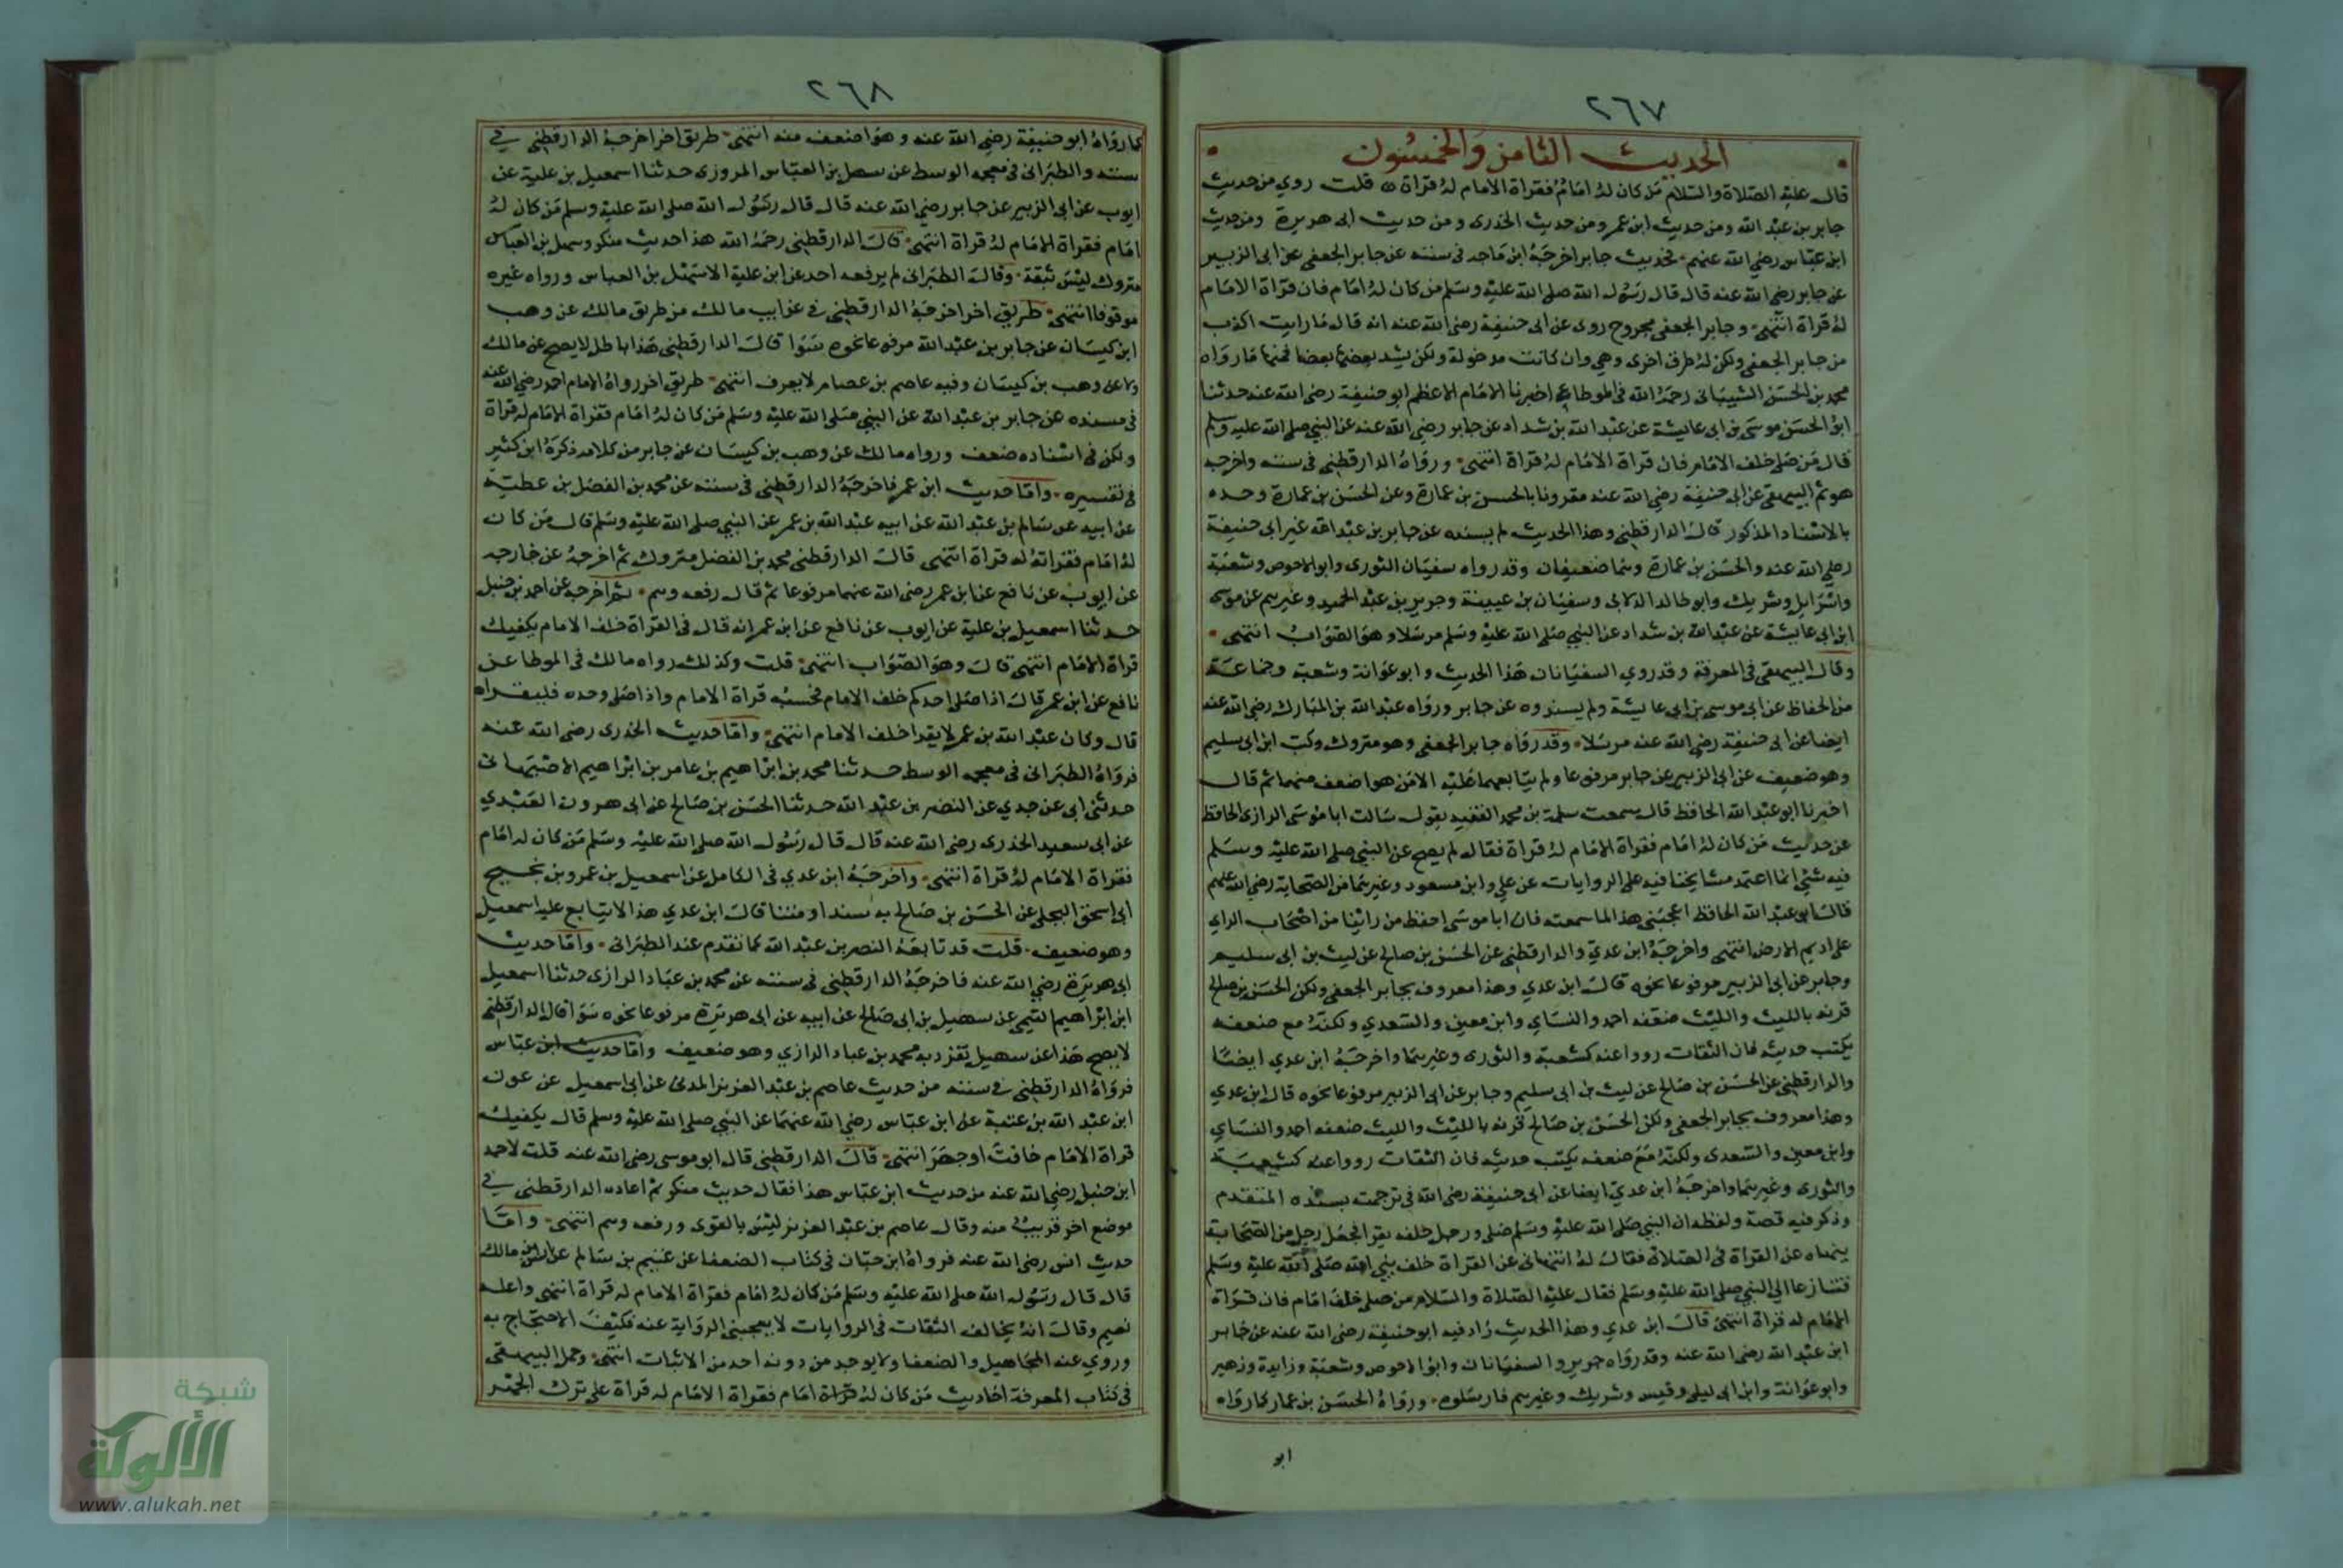 ٢٦٧
الحديث الثامن والخمسون
قال عليه الصلاة والسلام من كان له امام فقراة الامام له قراة قلت روي من حديث
جابر بن عبد الله ومن حديث ابن عمر ومن حديث الخدرى ومن حديث ابى هريرة ومن حديث
ابن عباس رضي الله عنهم فحديث جابر اخرجه ابن ماجه فى سننه عن جابر الجعفى عن ابى الزبير
عن جابر رضي الله عنه قال قال رسول الله صلى الله عليه وسلم من كان له امام فان قراة الامام
له قراة انتهى وجابر الجعفى مجروح روى عن ابى حنيفة رضي الله عنه انه قال ما رايت اكذب
من جابر الجعفى ولكن له طرق اخرى وهي وان كانت مدخولة ولكن يشد بعضها بعضا فمنها ما رواه
محمد بن الحسن الشيبانى رحمه الله فى الموطا اخبرنا الامام الاعظم ابو حنيفة رضى الله عنه حدثنا
ابو الحسن موسى بن ابى عايشة عن عبد الله بن شداد عن جابر رضي الله عنه عن النبي صلى الله عليه وسلم
قال من صلى خلف الامام فان قراة الامام له قراة انتهى ورواه الدارقطنى فى سننه واخرجه
هو ثم البيهقى عن ابى حنيفة رضي الله عنه مقرونا بالحسن بن عمارة وعن الحسن بن عمارة وحده
بالاسناد المذكور قال الدارقطنى وهذا الحديث لم يسنده عن جابر بن عبد الله غير ابى حنيفة
رضي الله عنه والحسن بن عمارة وهما ضعيفان وقد رواه سفيان الثورى وابو الاحوص وشعبة
واسرايل وشريك وابو خالد الدالانى وسفيان بن عيينة وجرير بن عبد الحميد وغيرهم عن موسى
ابن ابى عايشة عن عبد الله بن شداد عن النبي صلى الله عليه وسلم مرسلا وهو الصواب انتهى
وقال البيهقى فى المعرفة وقد روي السفيانان هذا الحديث وابو عوانة وشعبة وجماعة
من الحفاظ عن ابى موسى بن ابى عايشة ولم يسندوه عن جابر ورواه عبد الله بن المبارك رضي الله عنه
ايضا عن ابى حنيفة رضي الله عنه مرسلا وقد رواه جابر الجعفى وهو متروك وليث ابن ابى سليم
وهو ضعيف عن ابى الزبير عن جابر مرفوعا ولم يتابعهما عليه الا من هو اضعف منهما ثم قال
اخبرنا ابو عبد الله الحافظ قال سمعت سلمة بن محمد الفقيه يقول سالت ابا موسى الرازى الحافظ
عن حديث من كان له امام فقراة الامام له قراة فقال لم يصح عن النبي صلى الله عليه وسلم
فيه شئ انما اعتمد مشايخنا فيه على الروايات عن علي وابن مسعود وغيرهما من الصحابة رضي الله عنهم
قال ابو عبد الله الحافظ اعجبنى هذا لما سمعته فان ابا موسى احفظ من راينا من اصحاب الراي
على اديم الارض انتهى واخرجه ابن عدي والدارقطنى عن الحسن بن صالح عن ليث بن ابى سليم
وجابر عن ابى الزبير مرفوعا نحوه قال ابن عدي وهذا معروف بجابر الجعفى ولكن الحسن بن صالح
قرنه بالليث والليث ضعفه احمد والنساي وابن معين والسعدي ولكنه مع ضعفه
يكتب حديثه فان الثقات رووا عنه كشعبة والثورى وغيرهما واخرجه ابن عدي ايضا
والدارقطنى عن الحسن بن صالح عن ليث بن ابى سليم وجابر عن ابى الزبير مرفوعا نحوه قال ابن عدي
وهذا معروف بجابر الجعفى ولكن الحسن بن صالح قرنه بالليث والليث ضعفه احمد والنساي
وابن معين والسعدى ولكنه مع ضعفه يكتب حديثه فان الثقات رووا عنه كشعبة
والثورى وغيرهما واخرجه ابن عدي ايضا عن ابى حنيفة رضى الله فى ترجمته بسنده المتقدم
وذكر فيه قصة ولفظه ان النبي صلى الله عليه وسلم صلى ورجل خلفه يقرا فجعل رجل من الصحابة
ينهاه عن القراة فى الصلاة فقال له اتنهانى عن القراة خلف نبي الله صلى الله عليه وسلم
فتنازعا الى النبي صلى الله عليه وسلم فقال عليه الصلاة والسلام من صلى خلف امام فان قراة
الامام له قراة انتهى قال ابن عدي وهذا الحديث زاد فيه ابو حنيفة رضى الله عنه عن جابر
ابن عبد الله رضى الله عنه وقد رواه جرير والسفيانان وابو الاحوص وشعبة وزايدة وزهير
وابو عوانة وابن ابى ليلى وقيس وشريك وغيرهم فارسلوه ورواه الحسن بن عمار كما رواه
ابو
٢٦٨
كما رواه ابو حنيفة رضي الله عنه وهو اضعف منه انتهى طريق اخر اخرجه الدارقطنى في
سننه والطبرانى فى معجمه الوسط عن سهل بن العباس المروزى حدثنا اسمعيل بن علية عن
ايوب عن ابى الزبير عن جابر رضي الله عنه قال قال رسول الله صلى الله عليه وسلم من كان له
امام فقراة الامام له قراة انتهى قال الدارقطنى رحمه الله هذا حديث منكر وسهل بن العباس
متروك ليس بثقة وقال الطبرانى لم يرفعه احد عن ابن علية الا سهل بن العباس ورواه غيره
موقوفا انتهى طريق اخر اخرجه الدارقطنى في غرايب مالك من طريق مالك عن وهب
ابن كيسان عن جابر بن عبد الله مرفوعا نحوه سوا قال الدارقطنى هذا باطل لا يصح عن مالك
ولا عن وهب بن كيسان وفيه عاصم بن عصام لا يعرف انتهى طريق اخر رواه الامام احمد رضي الله عنه
فى مسنده عن جابر بن عبد الله عن النبي صلى الله عليه وسلم من كان له امام فقراة الامام له قراة
ولكن فى اسناده ضعف ورواه مالك عن وهب بن كيسان عن جابر من كلامه ذكره ابن كثير
فى تفسيره واما حديث ابن عمر فاخرجه الدارقطنى فى سننه عن محمد بن الفضل بن عطية
عن ابيه عن سالم بن عبد الله عن ابيه عبد الله بن عمر عن النبي صلى الله عليه وسلم قال من كان
له امام فقراته له قراة انتهى قال الدارقطنى محمد بن الفضل متروك ثم اخرجه عن خارجه
عن ايوب عن نافع عن ابن عمر رضى الله عنهما مرفوعا ثم قال رفعه وهم ثم اخرجه عن احمد بن حنبل
حدثنا اسمعيل بن علية عن ايوب عن نافع عن ابن عمر انه قال فى القراة خلف الامام يكفيك
قراة الامام انتهى قال وهو الصواب انتهى قلت وكذلك رواه مالك فى الموطا عن
نافع عن ابن عمر قال اذا صلى احدكم خلف الامام فحسبه قراة الامام واذا صلى وحده فليقراه
قال وكان عبد الله بن عمر لا يقرا خلف الامام انتهى واما حديث الخدرى رضى الله عنه
فرواه الطبرانى فى معجمه الوسط حدثنا محمد بن ابراهيم بن عامر بن ابراهيم الاصبهانى
حدثنى ابى عن جدي عن النضر بن عبد الله حدثنا الحسن بن صالح عن ابى هرون العبدي
عن ابى سعيد الخدرى رضى الله عنه قال قال رسول الله صلى الله عليه وسلم من كان له امام
فقراة الامام له قراة انتهى واخرجه ابن عدي فى الكامل عن اسمعيل بن عمرو بن نجيح
ابى اسحق البجلى عن الحسن بن صالح به سندا ومتنا قال ابن عدي هذا لا يتابع عليه اسمعيل
وهو ضعيف قلت قد تابعه النضر بن عبد الله كما تقدم عند الطبرانى واما حديث
ابى هريرة رضي الله عنه فاخرجه الدارقطنى فى سننه عن محمد بن عباد الرازى حدثنا اسمعيل
ابن ابراهيم التيمى عن سهيل بن ابى صالح عن ابيه عن ابى هريرة مرفوعا نحوه سوا قال الدارقطنى
لا يصح هذا عن سهيل تفرد به محمد بن عباد الرازي وهو ضعيف واما حديث ابن عباس
فرواه الدارقطنى في سننه من حديث عاصم بن عبد العزيز المدنى عن ابى سهيل عن عون
ابن عبد الله بن عتبة عن ابن عباس رضي الله عنهما عن النبي صلى الله عليه وسلم قال يكفيك
قراة الامام خافت او جهر انتهى قال الدارقطنى قال ابو موسى رضى الله عنه قلت لاحمد
ابن حنبل رضي الله عنه من حديث ابن عباس هذا فقال حديث منكر ثم اعاده الدارقطنى في
موضع اخر قريب منه وقال عاصم بن عبد العزيز ليس بالقوى ورفعه وهم انتهى واما
حديث انس رضى الله عنه فرواه ابن حبان فى كتاب الضعفا عن غنيم بن سالم عن انس بن مالك
قال قال رسول الله صلى الله عليه وسلم من كان له امام فقراة الامام له قراة انتهى واعله
وقال انه يخالف الثقات فى الروايات لا يعجبنى الرواية عنه فكيف الاحتجاج به
وروي عنه المجاهيل والضعفا ولا يوجد من دونه احد من الاثبات انتهى وحمل البيهقى
فى كتاب المعرفة احاديث من كان له قراة امام فقراة الامام له قراة على ترك الجهر
شبكة
الألوكة
www.alukah.net